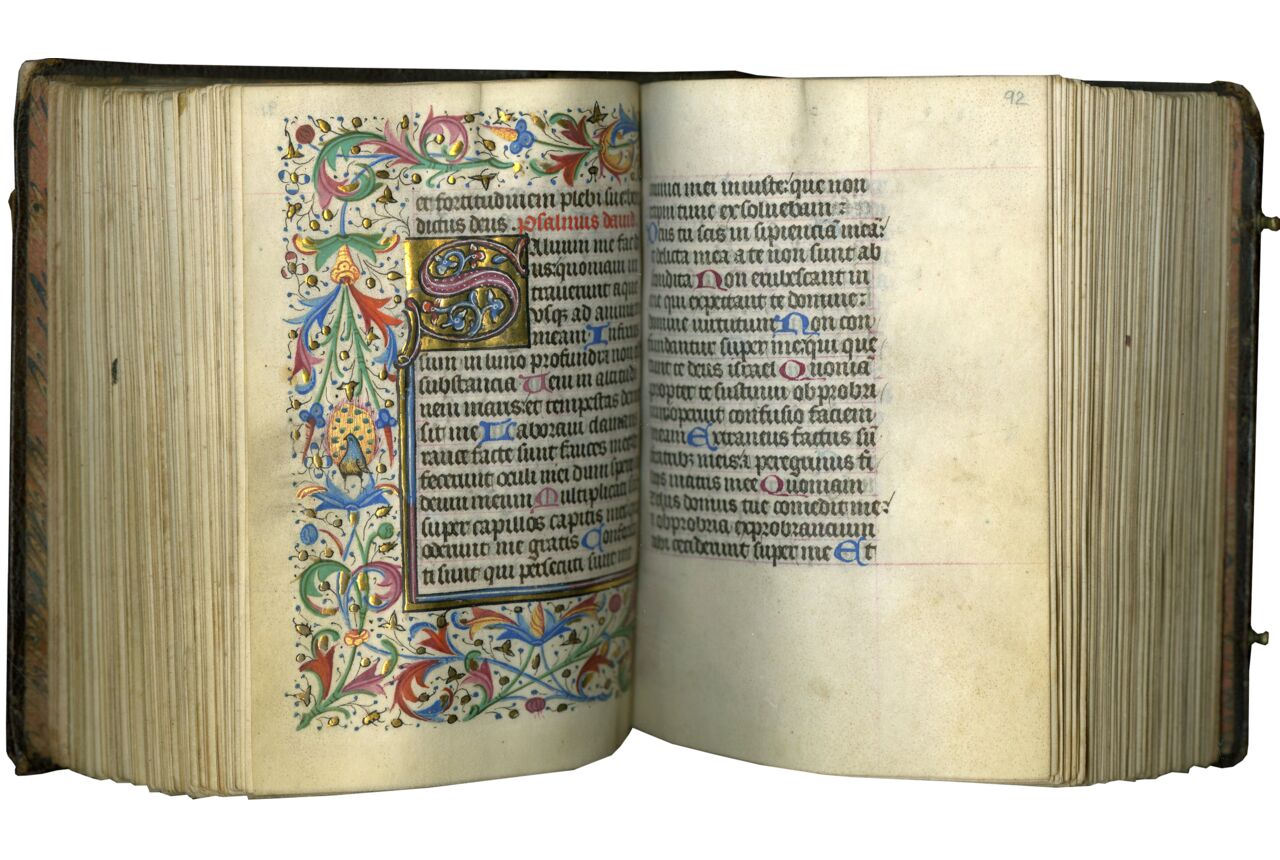 et fortitudinem plebi sue be
dictus deus . Psalmus dauid
Saluum me fac de
us: quoniam in
trauerunt aque
vsq; ad animam
meam Infixus
sum in limo profundi: et non
substancia Ueni in altitudi
nem maris: et tempestas
sit me Laboraui clamans
rauce facte sunt fauces mee
fecerunt oculi mei dum spero
deum meum Multiplicati
super capillos capitis mei
oderunt me gratis Confor
ti sunt qui persecuti sunt me
92
inimici mei iniuste: que non
rapui tunc exsoluebam:
Deus tu scis insipienciam mea:
et delicta mea a te non sunt ab
scondita Non erubescant in
me qui expectant te domine:
domine uirtutum Non con
fundantur super me: qui que
runt te deus israel Quonia
propter te sustinui obprobri
operuit confusio faciem
meam Extraneus factus su
fratribz meis: a peregrinus fi
liis matris mee Quoniam
zelus domus tue comedit me:
et obprobria exprobrancium
tibi ceciderunt super me Et